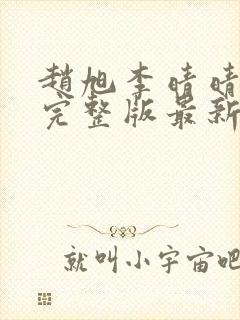 趙旭李晴晴
完整版最新
就叫小宇宙吧